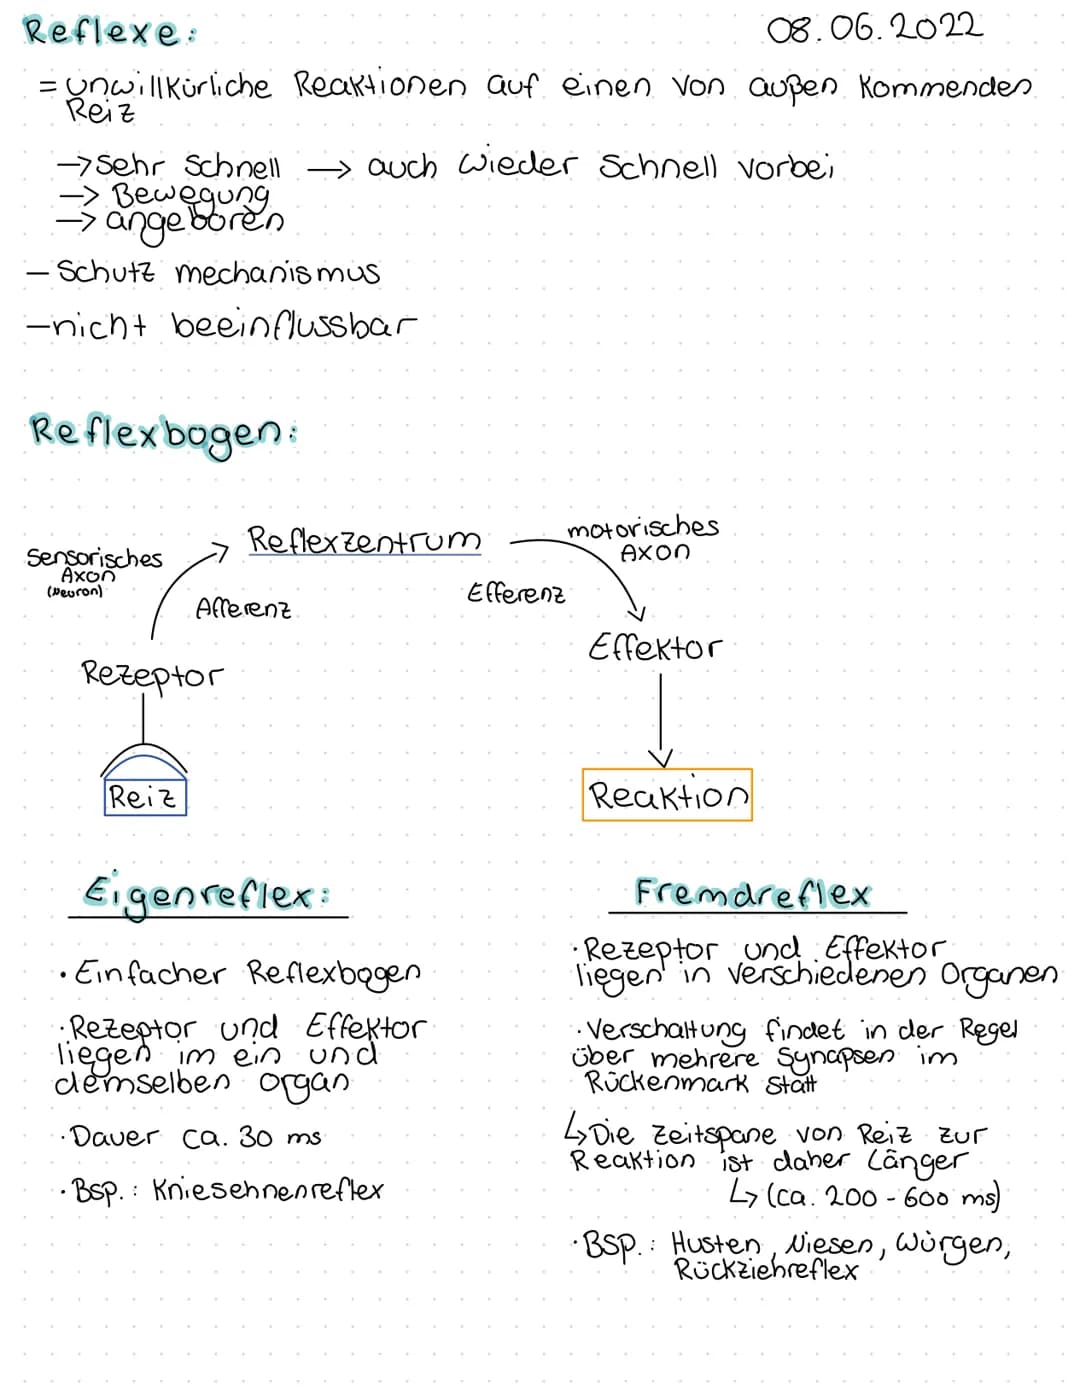 Reflexe:
08.06.2022
= unwillkürliche Reaktionen auf einen von außen kommenden
Reiz
→ sehr schnell → auch wieder schnell vorbei
→ Bewegung
→ angeboren
– Schutz mechanismus
– nicht beeinflussbar
Reflexbogen:
Sensorisches
Axon
(Neuron)
Afferenz
Reflexzentrum
Efferenz
motorisches
Axon
Rezeptor
Effektor
Reiz
Reaktion
Eigenreflex:
· Einfacher Reflexbogen
· Rezeptor und Effektor
liegen im ein und
demselben organ
· Dauer ca. 30 ms
· Bsp.: Kniesehnenreflex
Fremdreflex
· Rezeptor und Effektor
liegen in verschiedenen Organen
· Verschaltung findet in der Regel
über mehrere Synapsen im
Rückenmark statt
↳ Die Zeitspane von Reiz zur
Reaktion ist daher Länger
↳ (ca. 200 - 600 ms)
· BSP.: Husten, Niesen, Würgen,
Rückziehreflex